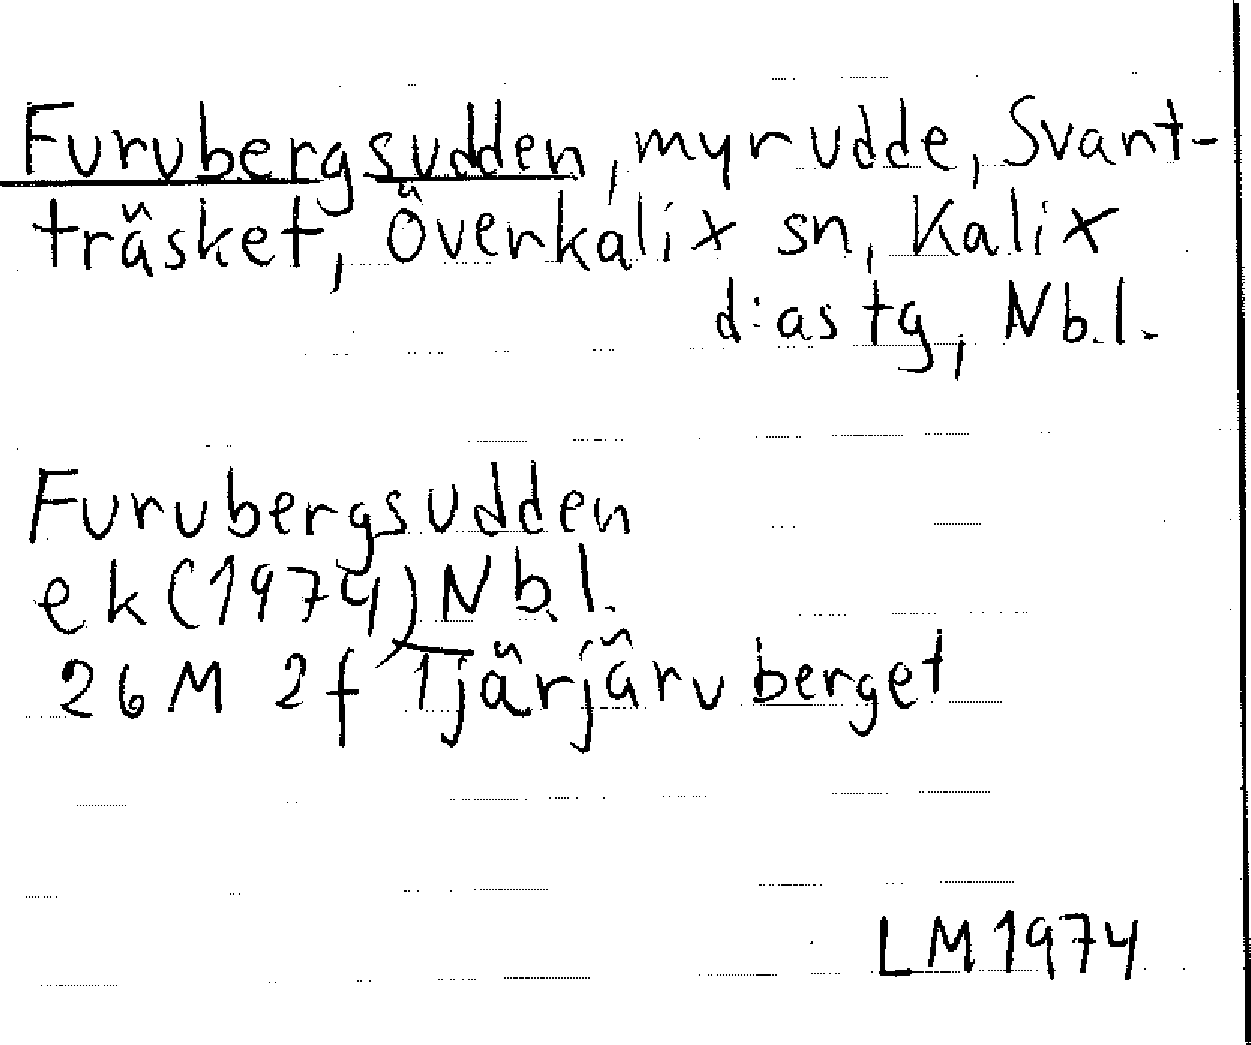 Furubergsudden, myrudde, Svant-
träsket, Överkalix sn, Kalix
d:as tg, Nb.l.
Furubergsudden
ek (1974) Nb.l.
26 M 2f Tjärjärvberget
LM 1974